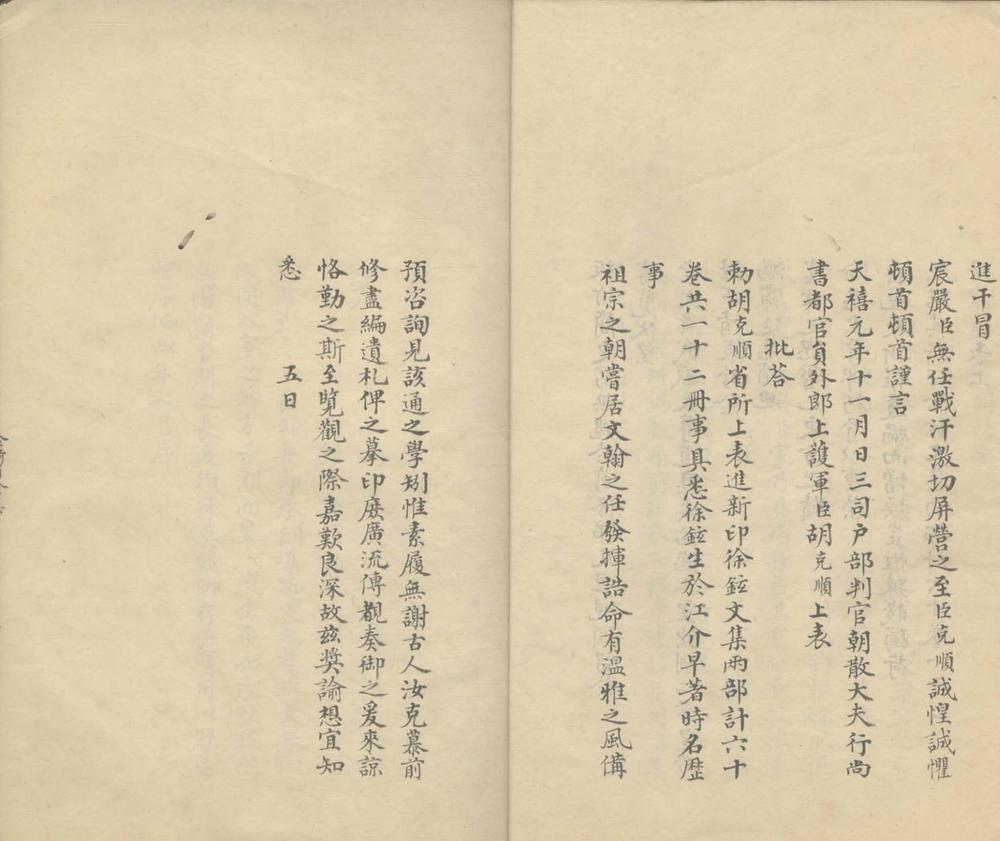 進干冒
宸嚴臣無任戰汗激切屏營之至臣克順誠惶誠懼
頓首頓首謹言
天禧元年十一月日三司户部判官朝散大夫行尚
書都官貟外郎上護軍臣胡克順上表
批荅
勑胡克順省所上表進新印徐鉉文集兩部計六十
卷共一十二冊事具悉徐鉉生於江介早著時名歴
事
祖宗之朝嘗居文翰之任發揮誥命有溫雅之風備
預咨詢見該通之學矧惟素履無謝古人汝克慕前
修盡編遺札俾之摹印庻廣流傳覩奏御之爰來諒
恪勤之斯至覽觀之際嘉歎良深故玆奬諭想宜知
悉 五日